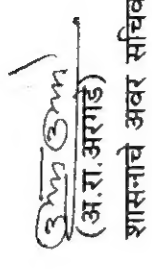 (अ.रा.अरगडे)
शासनाचे अवर सचिव